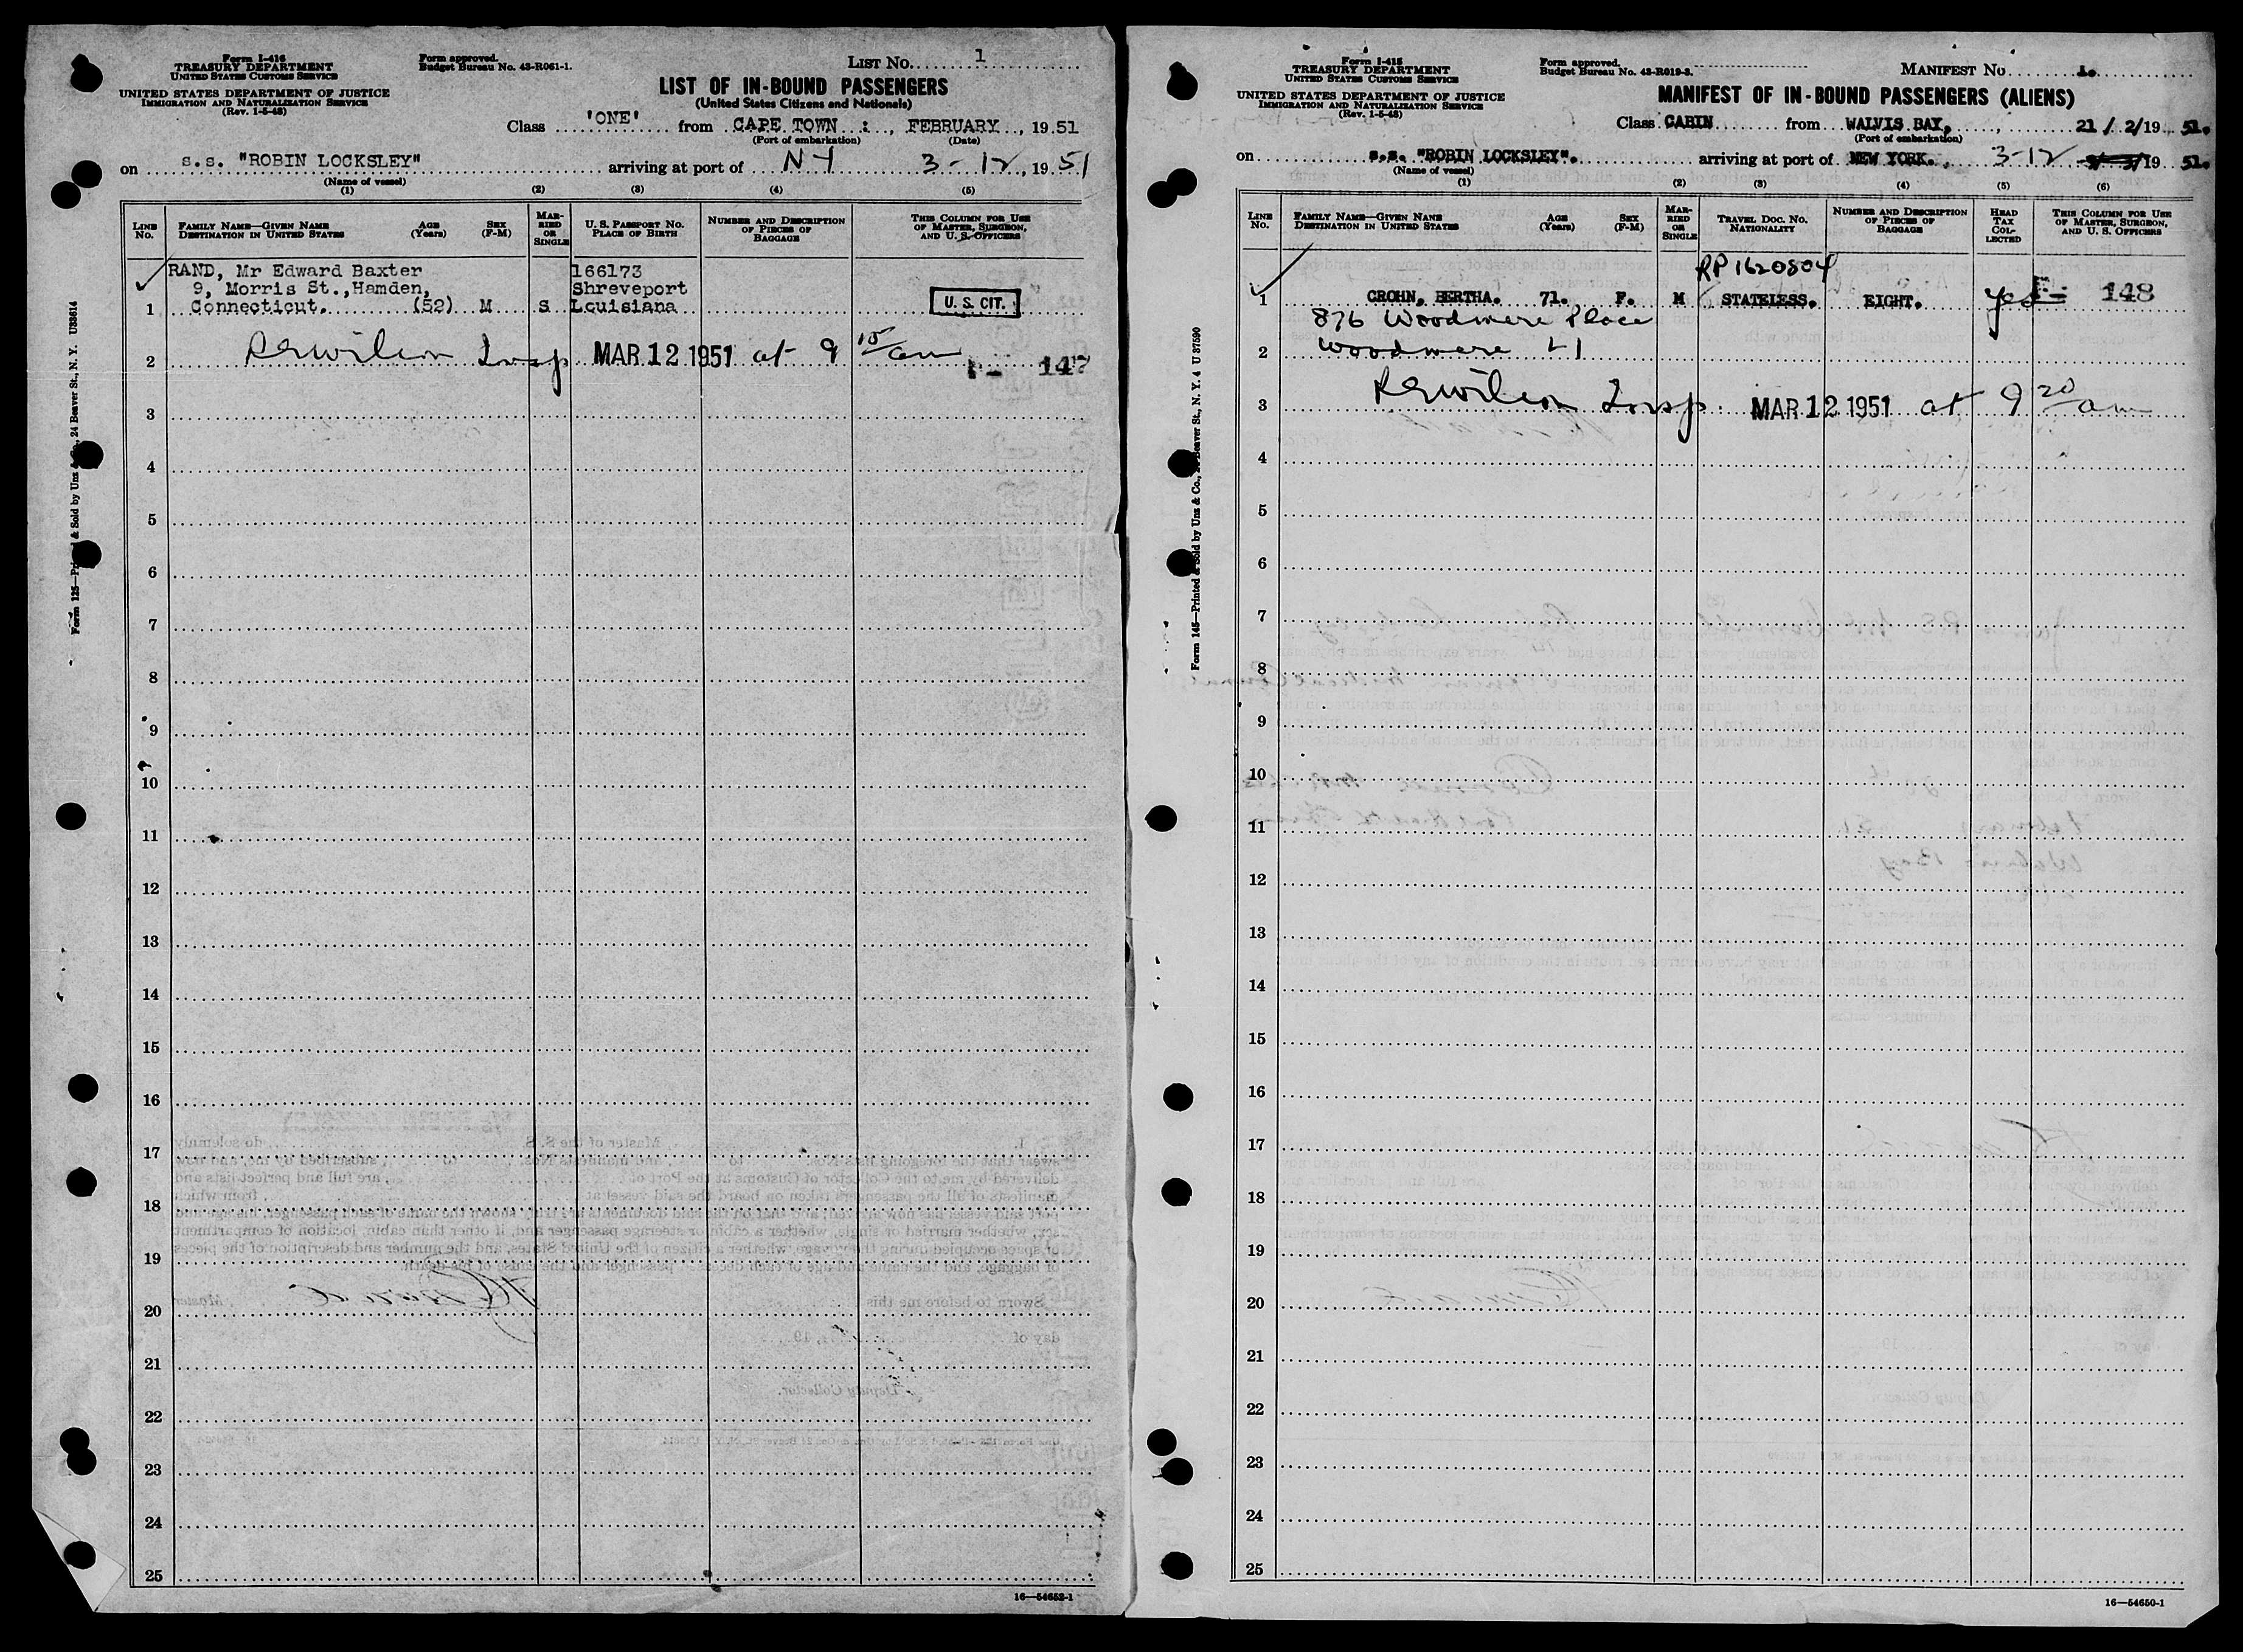 Form I-416
TREASURY DEPARTMENT
UNITED STATES CUSTOMS SERVICE
UNITED STATES DEPARTMENT OF JUSTICE
IMMIGRATION AND NATURALIZATION SERVICE
(Rev. 1-5-48)
Form approved.
Budget Bureau No. 43-R061-1.
LIST No. 1
LIST OF IN-BOUND PASSENGERS
(United States Citizens and Nationals)
Class 'ONE' from CAPE TOWN : , FEBRUARY , 1951
(Port of embarkation) (Date)
on s.s. "ROBIN LOCKSLEY" arriving at port of NY 3-12, 1951
(Name of vessel)
(1) (2) (3) (4) (5)
LINE No.
FAMILY NAME—GIVEN NAME AGE (Years) SEX (F-M)
DESTINATION IN UNITED STATES
MARRIED OR SINGLE
U. S. PASSPORT No.
PLACE OF BIRTH
NUMBER AND DESCRIPTION OF PIECES OF BAGGAGE
THIS COLUMN FOR USE OF MASTER, SURGEON, AND U. S. OFFICERS
RAND, Mr Edward Baxter 166173
9, Morris St., Hamden, Shreveport
1 Connecticut. (52) M S Louisiana U. S. CIT.
2 Insp MAR 12 1951 at 9 15/am 147
3
4
5
6
7
8
9
10
11
12
13
14
15
16
17
18
19
20
21
22
23
24
25
16—54652-1
Form 125—Printed & Sold by Unz & Co., 24 Beaver St., N. Y. U33614
Form I-415
TREASURY DEPARTMENT
UNITED STATES CUSTOMS SERVICE
UNITED STATES DEPARTMENT OF JUSTICE
IMMIGRATION AND NATURALIZATION SERVICE
(Rev. 1-5-48)
Form approved.
Budget Bureau No. 43-R019-3.
MANIFEST No. 1.
MANIFEST OF IN-BOUND PASSENGERS (ALIENS)
Class CABIN from WALVIS BAY, , 21/2/19 51.
(Port of embarkation)
on s.s. "ROBIN LOCKSLEY". arriving at port of NEW YORK. 3-12 19 51.
(Name of vessel)
(1) (2) (3) (4) (5) (6)
LINE No.
FAMILY NAME—GIVEN NAME AGE (Years) SEX (F-M)
DESTINATION IN UNITED STATES
MARRIED OR SINGLE
TRAVEL DOC. No.
NATIONALITY
NUMBER AND DESCRIPTION OF PIECES OF BAGGAGE
HEAD TAX COLLECTED
THIS COLUMN FOR USE OF MASTER, SURGEON, AND U. S. OFFICERS
RP 1620804
1 CROHN, BERTHA. 71. F. M STATELESS. EIGHT. yes 148
876 Woodmere Place
2 Woodmere LI
3 Insp. MAR 12 1951 at 9 20/am
4
5
6
7
8
9
10
11
12
13
14
15
16
17
18
19
20
21
22
23
24
25
16—54650-1
Form 145—Printed & Sold by Unz & Co., 24 Beaver St., N. Y. 4 U 37590